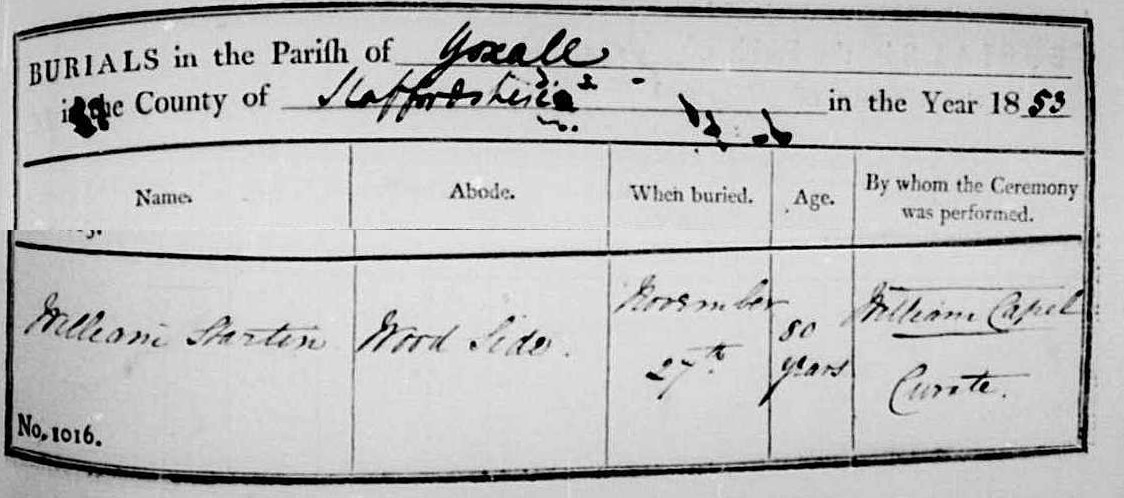 BURIALS in the Pariſh of Yoxall
in the County of Staffordshire in the Year 1853
Name. Abode. When buried. Age. By whom the Ceremony was performed.
William Startin Wood Side. November 27th 80 years William Capel Curate.
No. 1016.